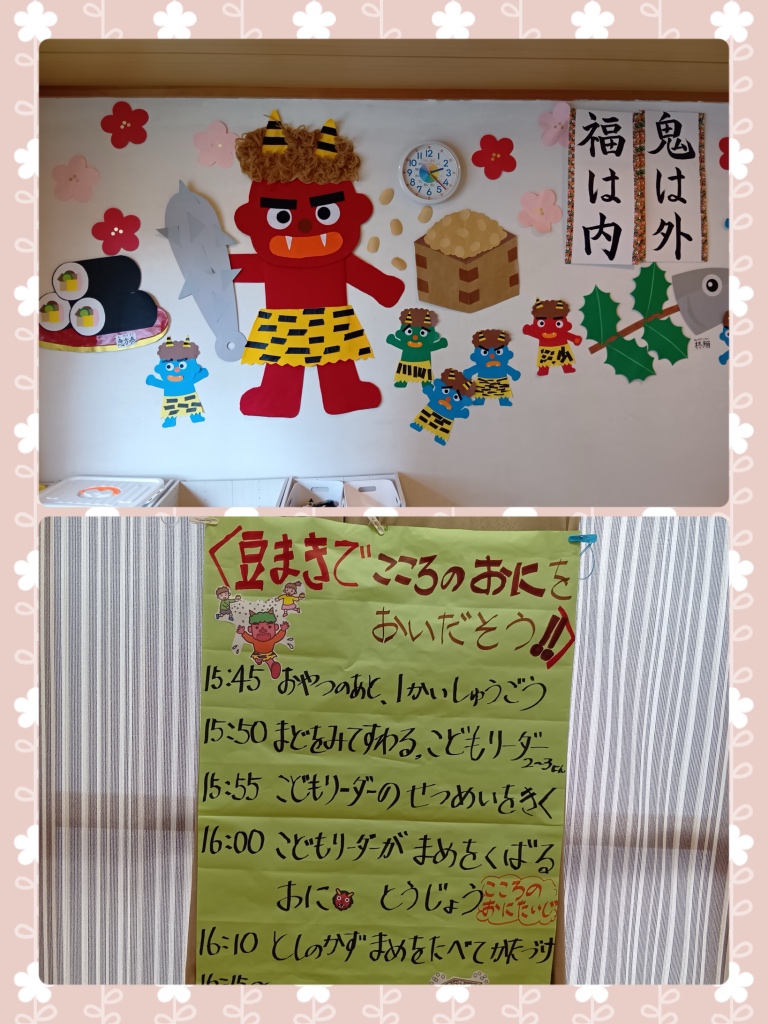 鬼は外
福は内
恵方巻
柊鰯
12 1 2 3 4 5 6 7 8 9 10 11
〈豆まきで こころの おにを
おいだそう!!〉
15:45 おやつのあと、1かいしゅうごう
15:50 まどをみてすわる。こどもリーダー
2〜3にん
15:55 こどもリーダーの せつめいをきく
16:00 こどもリーダーが まめをくばる
おに とうじょう
こころの
おにたいじ
16:10 としのかず まめをたべて かたづけ
16:15〜